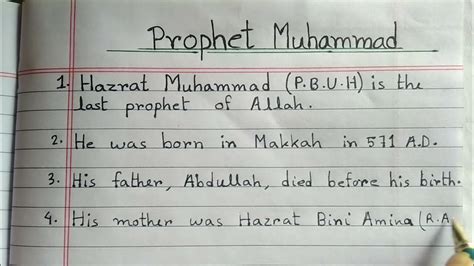 Prophet Muhammad
1. Hazrat Muhammad (P.B.U.H) is the
last prophet of Allah.
2. He was born in Makkah in 571 A.D.
3. His father, Abdullah, died before his birth.
4. His mother was Hazrat Bini Amina (R.A.